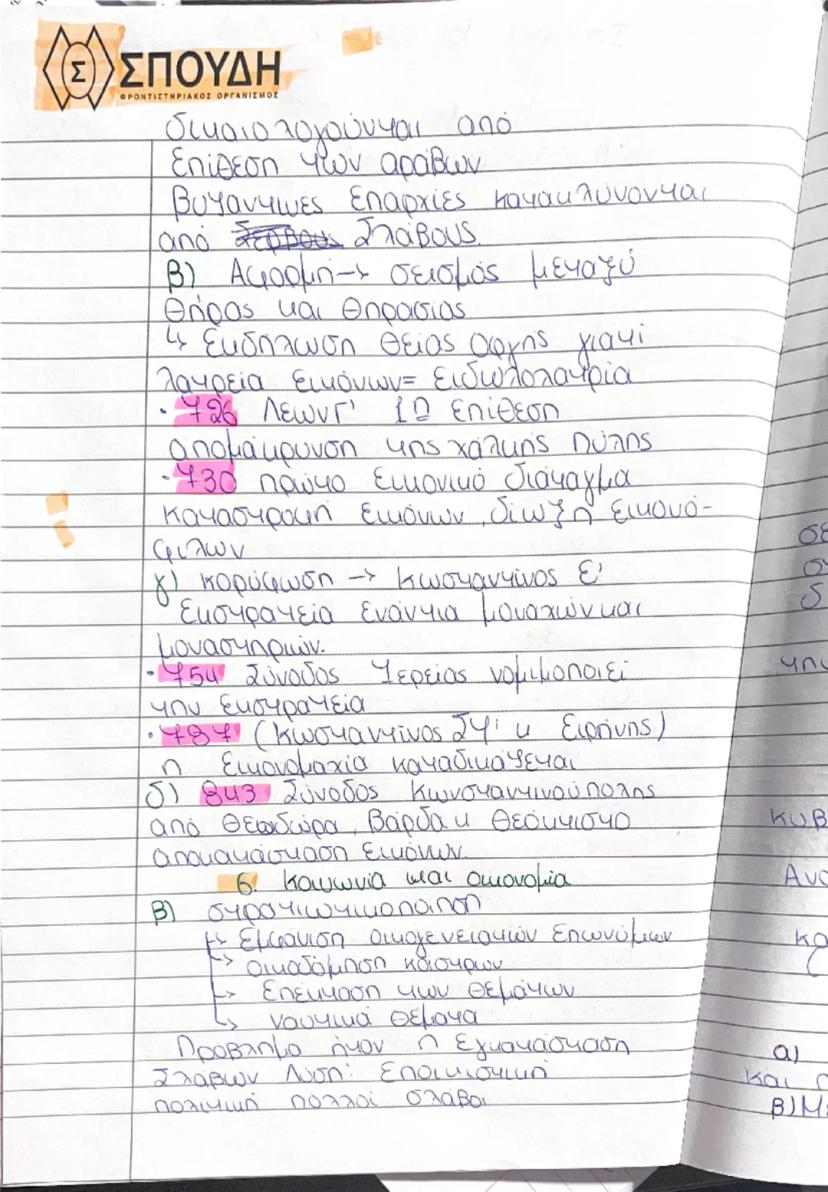 ΣΠΟΥΔΗ
ΦΡΟΝΤΙΣΤΗΡΙΑΚΟΣ ΟΡΓΑΝΙΣΜΟΣ
δικαιολογούνται από
Επίθεση των αράβων
Βυζαντινές Επαρχίες κατακλύνονται
από Σλάβους.
β) Αφορμή → σεισμός μεταξύ
Θήρας και Θηρασίας
↳ Εκδήλωση Θείας οργής γιατί
λατρεία εικόνων = Ειδωλολατρία
· 726 Λέων Γ' 1η Επίθεση
απομάκρυνση της χάλκης πύλης
· 730 πρώτο Εικονικό διάταγμα
καταστροφή εικόνων, δίωξη εικονό-
φιλων
γ) κορύφωση → Κωσταντίνος Ε'
Εκστρατεία ενάντια μοναχών και
μοναστηριών.
· 754 Σύνοδος Ιερείας νομιμοποιεί
την Εκστρατεία
· 787 (Κωσταντίνος ΣΤ' κ Ειρήνης)
η Εικονομαχία καταδικάζεται
δ) 843 Σύνοδος Κωνσταντινούπολης
από Θεοδώρα, Βάρδα κ Θεόκτιστο
αποκατάσταση Εικόνων.
6. Κοινωνία και οικονομία
β) στρατιωτικοποίηση
↳ Εμφάνιση οικογενειακών Επωνύμων
↳ οικοδόμηση κάστρων
↳ Επέκταση των Θεμάτων
↳ ναυτικά Θέματα
Πρόβλημα ήταν η Εγκατάσταση
Σλάβων Λύση: Εποικιστική
πολιτική πολλοί σλάβοι
σε
στ
δ
την
κυβ
Ανα
κα
α)
και
β) Μ